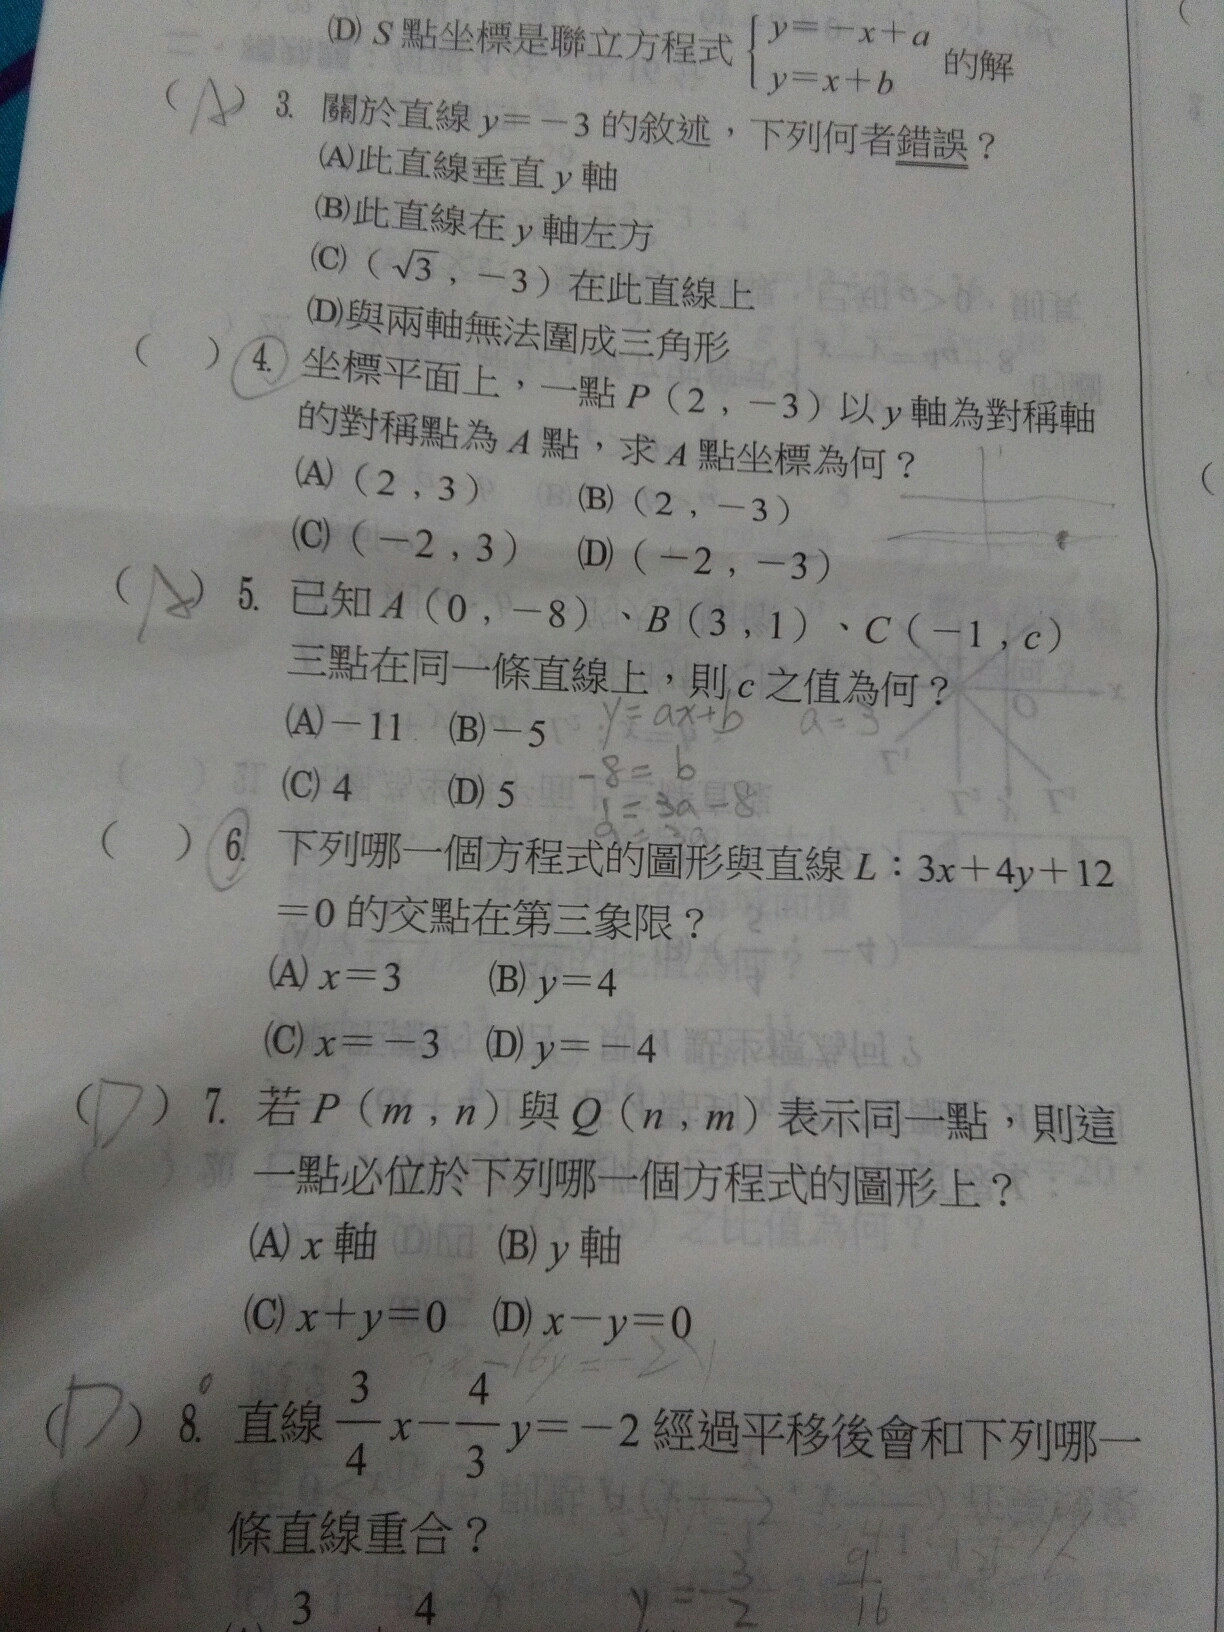 (D) S 點坐標是聯立方程式 { y=-x+a
y=x+b 的解
(A) 3. 關於直線 y=-3 的敘述，下列何者錯誤？
(A)此直線垂直 y 軸
(B)此直線在 y 軸左方
(C)（√3 , -3）在此直線上
(D)與兩軸無法圍成三角形
( ) 4. 坐標平面上，一點 P（2 , -3）以 y 軸為對稱軸
的對稱點為 A 點，求 A 點坐標為何？
(A)（2 , 3） (B)（2 , -3）
(C)（-2 , 3） (D)（-2 , -3）
(A) 5. 已知 A（0 , -8）、B（3 , 1）、C（-1 , c）
三點在同一條直線上，則 c 之值為何？
y=ax+b a=3
(A)-11 (B)-5
-8=b
(C) 4 (D) 5
1=3a-8
9=3a
( ) 6. 下列哪一個方程式的圖形與直線 L：3x+4y+12
=0 的交點在第三象限？
(A) x=3 (B) y=4
(C) x=-3 (D) y=-4
(D) 7. 若 P（m , n）與 Q（n , m）表示同一點，則這
一點必位於下列哪一個方程式的圖形上？
(A) x 軸 (B) y 軸
(C) x+y=0 (D) x-y=0
9x-16y=-24
(D) 8. 直線 3/4 x- 4/3 y=-2 經過平移後會和下列哪一
條直線重合？
3 4
y= 3/2 9/16